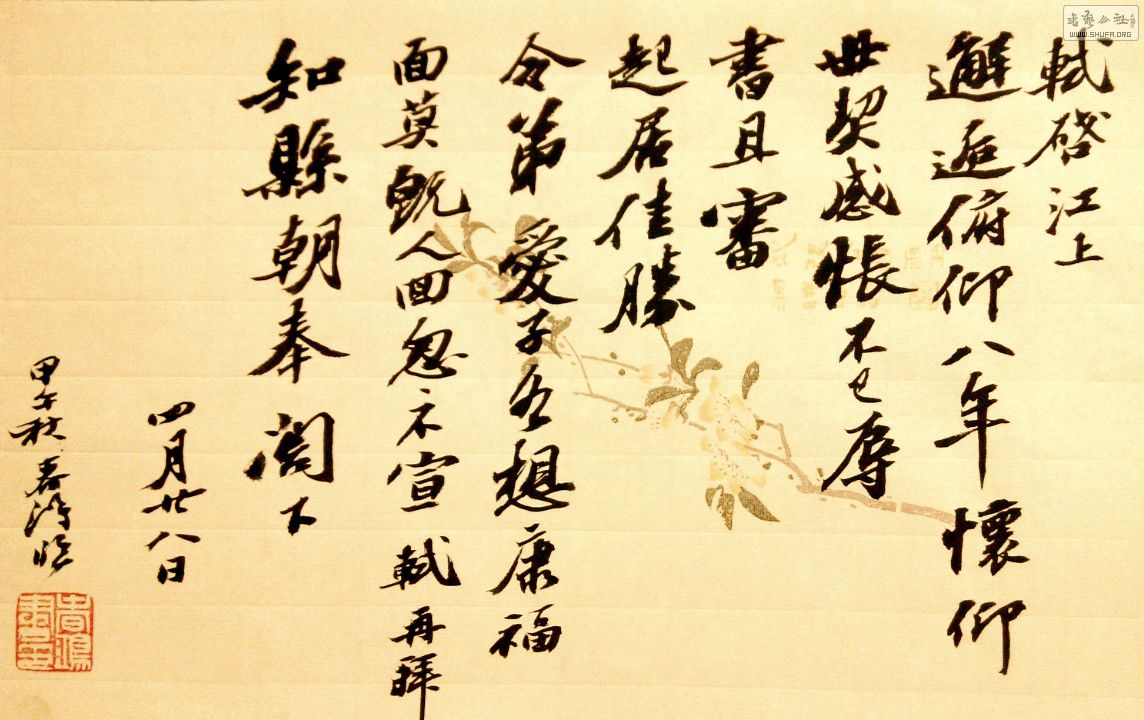 軾啓江上
邂逅俯仰八年懷仰
世契感悵不已辱
書且審
起居佳勝
令弟愛子各想康福
面莫既人回忽不宣軾再拜
知縣朝奉閣下
四月廿八日
甲午秋春鴻臨
书艺公社
WWW.SHUFA.ORG